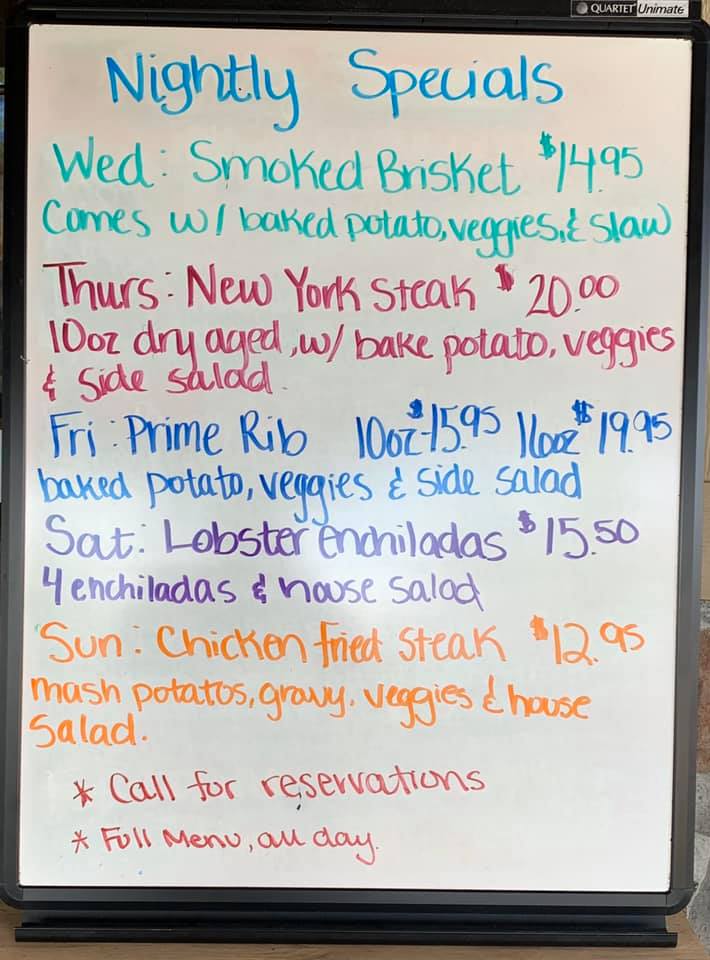 QUARTET Unimate
Nightly Specials
Wed: Smoked Brisket $14.95
Comes w/ baked potato, veggies, & slaw
Thurs: New York Steak $20.00
10oz dry aged, w/ bake potato, veggies
& side salad.
Fri: Prime Rib 10oz-$15.95 16oz $19.95
baked potato, veggies & side salad
Sat: Lobster enchiladas $15.50
4 enchiladas & house salad
Sun: Chicken fried steak $12.95
mash potatos, gravy, veggies & house
salad.
* Call for reservations
* Full Menu, all day.